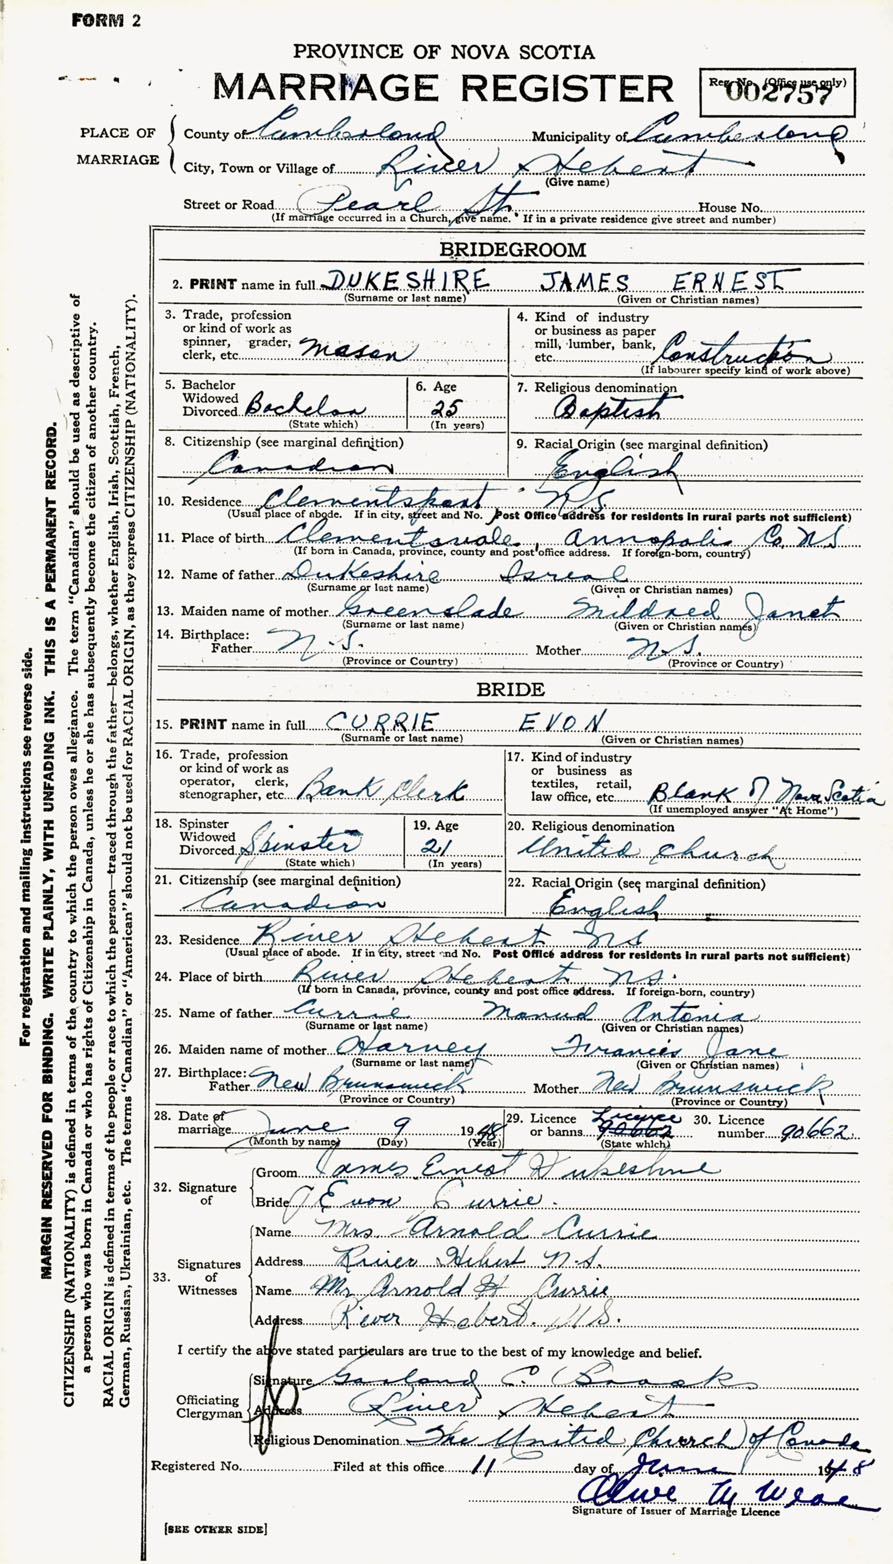 FORM 2
PROVINCE OF NOVA SCOTIA
MARRIAGE REGISTER
Reg. No. (Office use only)
002757
PLACE OF MARRIAGE
County of Cumberland Municipality of Cumberland
City, Town or Village of River Hebert
(Give name)
Street or Road Pearl St. House No.
(If marriage occurred in a Church, give name. If in a private residence give street and number)
BRIDEGROOM
2. PRINT name in full DUKESHIRE JAMES ERNEST
(Surname or last name) (Given or Christian names)
3. Trade, profession or kind of work as spinner, grader, clerk, etc. Mason
4. Kind of industry or business as paper mill, lumber, bank, etc. Construction
(If labourer specify kind of work above)
5. Bachelor Widowed Divorced Bachelor
(State which)
6. Age 25
(In years)
7. Religious denomination
Baptist
8. Citizenship (see marginal definition)
Canadian
9. Racial Origin (see marginal definition)
English
10. Residence Clementsport N.S.
(Usual place of abode. If in city, street and No. Post Office address for residents in rural parts not sufficient)
11. Place of birth Clementsvale, Annapolis Co. NS
(If born in Canada, province, county and post office address. If foreign-born, country)
12. Name of father Dukeshire Isreal
(Surname or last name) (Given or Christian names)
13. Maiden name of mother Greenslade Mildred Janet
(Surname or last name) (Given or Christian names)
14. Birthplace:
Father N.S. Mother N.S.
(Province or Country) (Province or Country)
BRIDE
15. PRINT name in full CURRIE EVON
(Surname or last name) (Given or Christian names)
16. Trade, profession or kind of work as operator, clerk, stenographer, etc. Bank Clerk
17. Kind of industry or business as textiles, retail, law office, etc. Blank of Nova Scotia
(If unemployed answer "At Home")
18. Spinster Widowed Divorced Spinster
(State which)
19. Age 21
(In years)
20. Religious denomination
United Church
21. Citizenship (see marginal definition)
Canadian
22. Racial Origin (see marginal definition)
English
23. Residence River Hebert NS
(Usual place of abode. If in city, street and No. Post Office address for residents in rural parts not sufficient)
24. Place of birth River Hebert N.S.
(If born in Canada, province, county and post office address. If foreign-born, country)
25. Name of father Currie Antonia
(Surname or last name) (Given or Christian names)
26. Maiden name of mother Harvey Francis Jane
(Surname or last name) (Given or Christian names)
27. Birthplace:
Father New Brunswick Mother New Brunswick
(Province or Country) (Province or Country)
28. Date of marriage June 9 1948
(Month by name) (Day) (Year)
29. Licence or banns Licence 90662
(State which)
30. Licence number 90662
32. Signature of
Groom James Ernest Dukeshire
Bride Evon Currie.
33. Signatures of Witnesses
Name Mrs. Arnold Currie
Address River Hebert N.S.
Name Mr Arnold H Currie
Address River Hebert. N.S.
I certify the above stated particulars are true to the best of my knowledge and belief.
Officiating Clergyman
Signature Garland C. Brooks
Address River Hebert
Religious Denomination The United Church of Canada
Registered No. Filed at this office 11 day of June 1948
Olive M
Signature of Issuer of Marriage Licence
[SEE OTHER SIDE]
For registration and mailing instructions see reverse side.
MARGIN RESERVED FOR BINDING. WRITE PLAINLY, WITH UNFADING INK. THIS IS A PERMANENT RECORD.
CITIZENSHIP (NATIONALITY) is defined in terms of the country to which the person owes allegiance. The term "Canadian" should be used as descriptive of
a person who was born in Canada or who has rights of Citizenship in Canada, unless he or she has subsequently become the citizen of another country.
RACIAL ORIGIN is defined in terms of the people or race to which the person—traced through the father—belongs, whether English, Irish, Scottish, French,
German, Russian, Ukrainian, etc. The terms "Canadian" or "American" should not be used for RACIAL ORIGIN, as they express CITIZENSHIP (NATIONALITY).